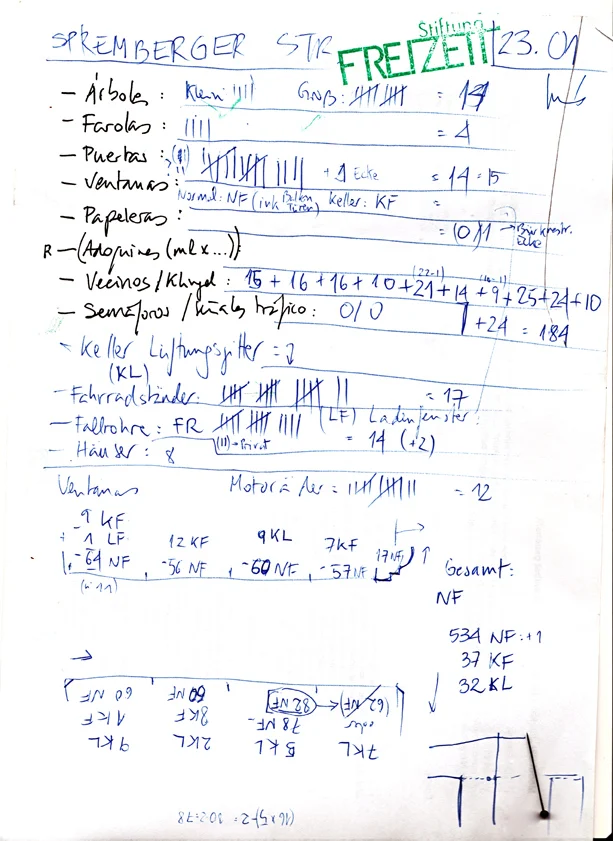 SPREMBERGER STR
Stiftung
FREIZEIT
23.01
- Árboles: Klein IIII Groß: = 14
- Farolas: IIII = 4
- Puertas: + 1 Ecke = 14 = 15
- Ventanas:
Normal: NF (ink Balkon Türen) Keller: KF =
- Papeleras: = (0) 1 →
R - (Adoquines (ml x...)):
- Vecinos/Klingel: 15 + 16 + 16 + 10 + 21 + 14 + 9 + 25 + 24 + 10
(22-1) (10-1)
+ 24 = 184
- Semáforos / señales tráfico: 0/0
- Keller Lüftungsgitter =
(KL)
- Fahrradständer: = 17
- Fallrohre: FR (LF) Ladenfenster:
(II) → Privat = 14 (+2)
- Häuser: 8
Ventanas Motorräder = = 12
- 9 KF
+ 1 LF 12 KF 9 KL 7 KF 17 NF
- 64 NF, - 56 NF, - 60 NF, - 57 NF
Gesamt:
NF
534 NF: +1
37 KF
32 KL
60 NF 60 NF 82 NF → (62 NF)
1 KF 8 KF 78 NF oder
9 KL 2 KL 5 KL 7 KL